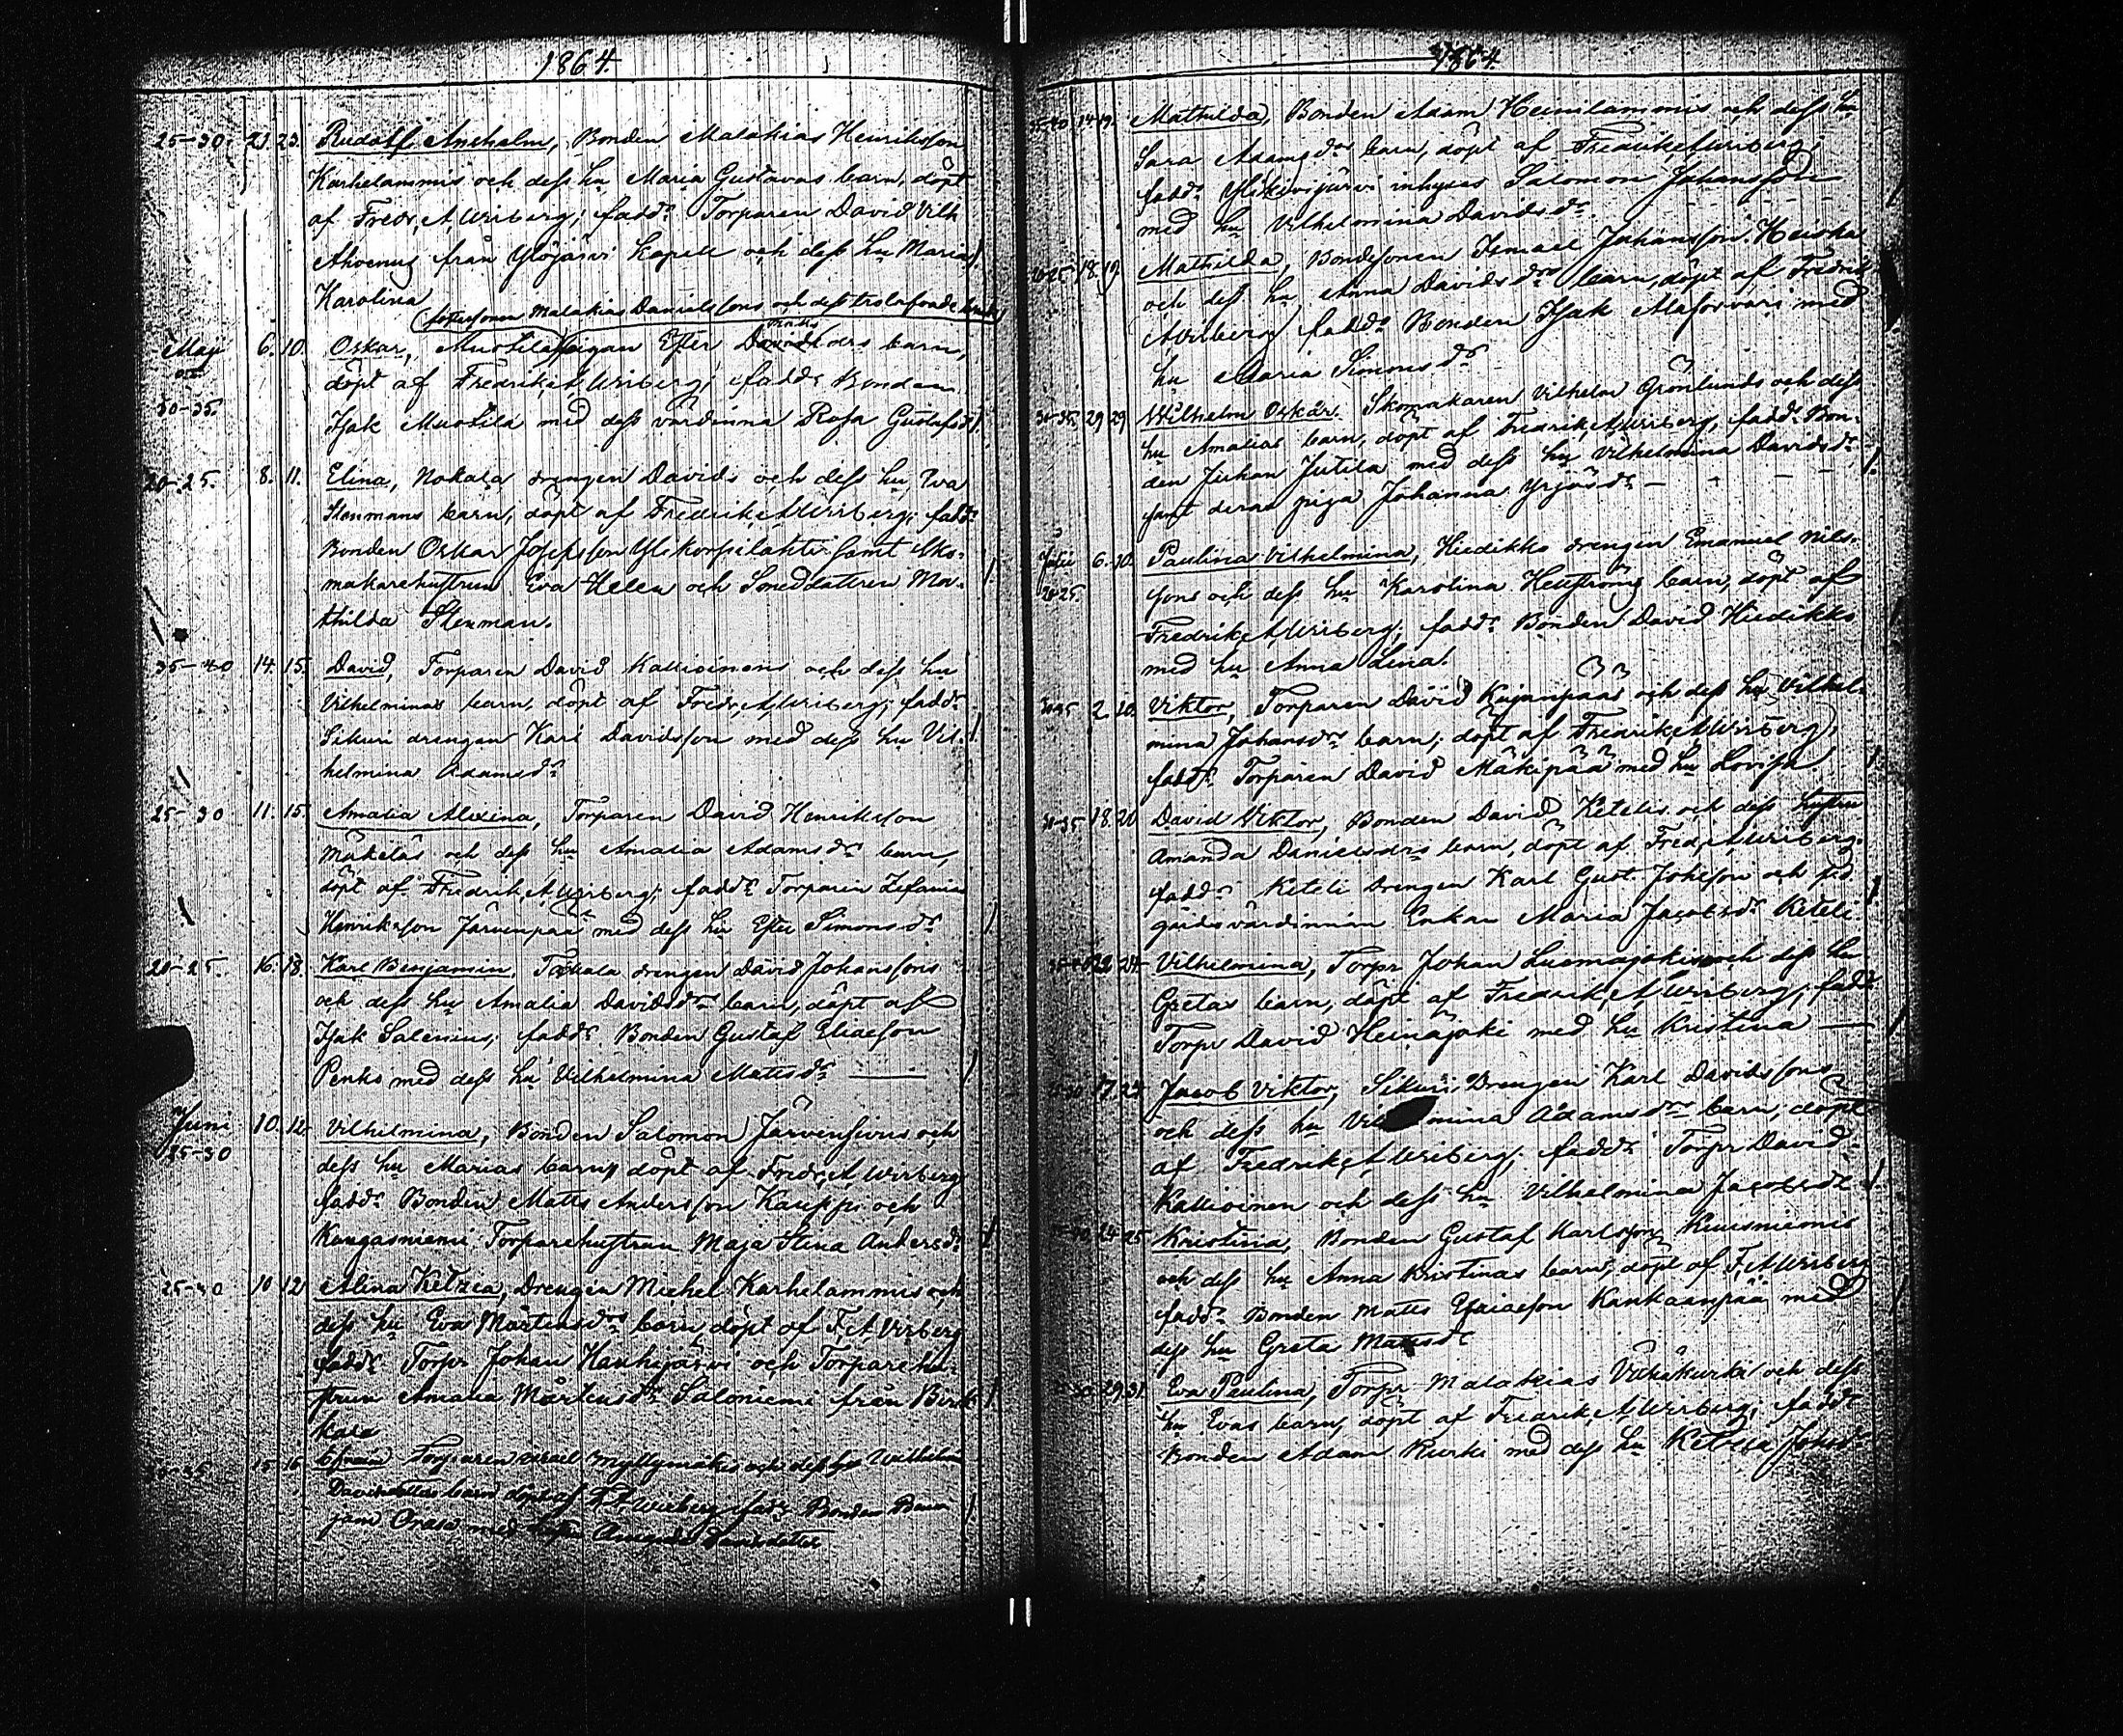 1864.
25-30. 21. 23. Rudolf Anshelm, Bonden Malakias Henriksson
Karhelammis och dess hu Maria Gustavas barn, döpt
af Fredr. A. Wirberg; fadd: Torparen David Vilh
Ahoenus från Ylöjärvi Kapell och dess hu Maria
Karolina
fostersonen Malakias Danielssons och dess trolofvade
Maj 6. 10. Oskar, Muotila pigan Ester barn,
30-35. döpt af Fredrik A Wirberg; fadd: Bonden
Isak Muotila med dess värdinna Rosa Gustafsdr
20-25. 8. 11. Elina, Nokala drengen Davids och dess hu Eva
Stenmans barn, döpt af Fredrik A Wirberg; fadd:
Bonden Oskar Josefsson Ylikorpilahti samt Sko-
makarehustrun Eva Helen och Smeddottren Ma-
thilda Stenman.
35-40 14. 15. David, Torparen David Kallioinens och dess hu
Vilhelminas barn, döpt af Fredr. A Wirberg; fadd:
Sikuri drengen Karl Davidsson med dess hu Vil-
helmina Adamsdr
25-30 11. 15. Amalia Alexina, Torparen David Henriksson
Mäkeläs och dess hu Amalia Adamsdrs barn,
döpt af Fredrik A Wirberg; fadd: Torparen Zefanias
Henriksson Järvenpää med dess hu Ester Simonsdr
20-25. 16. 18. Karl Benjamin, drengen David Johanssons
och dess hu Amalia Davidsdrs barn, döpt af
Isak Salenius; fadd: Bonden Gustaf Eliaeson
Penko med dess hu Vilhelmina Matsdr
Juni 10. 12. Vilhelmina, Bonden Salomon Järvensivus och
25-30 dess hu Marias barn, döpt af Fredr. A Wirberg
fadd: Bonden Matts Andersson Kauppi och
Kangasniemi Torparehustrun Maja Stina Andersdr
25-30 10 12 Alina Ketrea, Drengen Michel Karhelammis och
dess hu Eva Mårtensdrs barn, döpt af F. A Wirberg
fadd: Torpr Johan Hauhijärvi och Torparehu-
strun Amalia Mårtensdr Saloniemi från Birk-
kala
15 16 Efraim Torparen Israel Myllymäkis och dess hu Wilhelmina
Davidsdotters barn döpt af F A Wirberg fadd: Bonden Benja
jam Orasa med hustru Amanda
1864.
14. 19. Mathilda, Bonden Adam Heinilammis och dess hu
Sara Adamsdrs barn, döpt af Fredrik A Wirberg;
fadd: inhyses Salomon Johansson
med hu Vilhelmina Davidsdr.
20-25 18. 19. Mathilda, Bondesonen Ismael Johansson Heiska
och dess hu Anna Davidsdrs barn, döpt af Fredrik
A Wirberg fadd: Bonden Isak Alasorvari med
hu Maria Simonsdr
30-35. 29 29 Wilhelm Oskar. Skomakaren Vilhelm Grönlunds och dess
hu Amalias barn, döpt af Fredrik A Wirberg, fadd: Bon-
den Juhan Jutila med dess hu Vilhelmina Davidsdr
samt deras piga Johanna Yrjösdr
Julii 6. 10. Paulina Vilhelmina, Hiedikko drengen Emanuel Nils-
20-25. sons och dess hu Karolina Hellströms barn, döpt af
Fredrik A Wirberg; fadd: Bonden David Hiedikko
med hu Anna Lena.
30-35 2. 10. Viktor, Torparen David Kajanpääs och dess hu Vilhel-
mina Johansdrs barn; döpt af Fredrik A Wirberg;
fadd: Torparen David Mäkipää med hu Lovisa
30-35. 18. 20 David Viktor, Bonden David Ketelis och dess hustru
Amanda Danielsdrs barn, döpt af Fredr. A Wirberg
fadd: Keteli Drengen Karl Gust. Johsson och
gårdsvärdinnan Enkan Maria Jacobsdr Keteli
22 24 Vilhelmina, Torpr Johan Luomajokis och dess hu
Gretas barn, döpt af Fredrik A Wirberg; fadd:
Torpr David Heinäjoki med hu Kristina
17. 24. Jacob Viktor, Sikuri Drengen Karl Davidssons
och dess hu Vilhelmina Adamsdrs barn; döpt
af Fredrik A Wirberg; fadd: Torpr David
Kallioinen och dess hu Vilhelmina Jacobsdr
24 25 Kristina, Bonden Gustaf Karlsson Kuusniemis
och dess hu Anna Kristinas barn, döpt af F, A Wirberg
fadd: Bonden Matts Esaiaeson Kankaanpää med
dess hu Greta Matsdr
29. 31. Eva Paulina, Torpr Malakias Vähäkurki och dess
hu Evas barn, döpt af Fredrik A Wirberg; fadd:
Bonden Adam Kurki med dess hu Johsdr